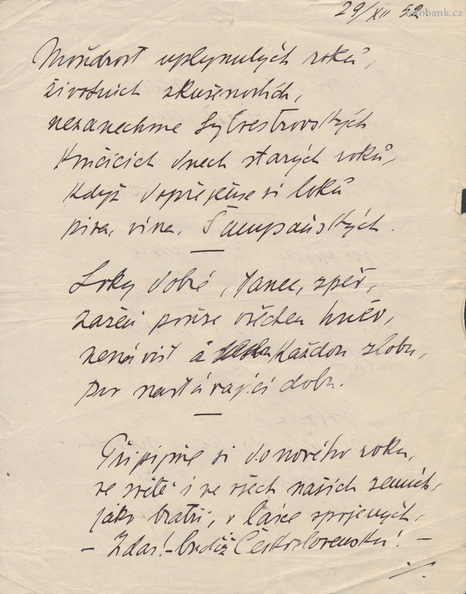 29/XII 52
Moudrost uplynulých roků,
životních zkušenostích,
nezanechme Sylvestrovských
končících dnech starých roků,
když dopřejeme si loků
piva, vína, Šampaňských.
—
Loky dobré, tanec, zpěv,
zažeň pouze všechen hněv,
nenávist a každou zlobu,
pro nastávající dobu.
—
Připijme si do nového roku,
ve světě i ve všech našich zemích,
jako bratři, v lásce spojených,
– Zdar! – budiž Československu! –